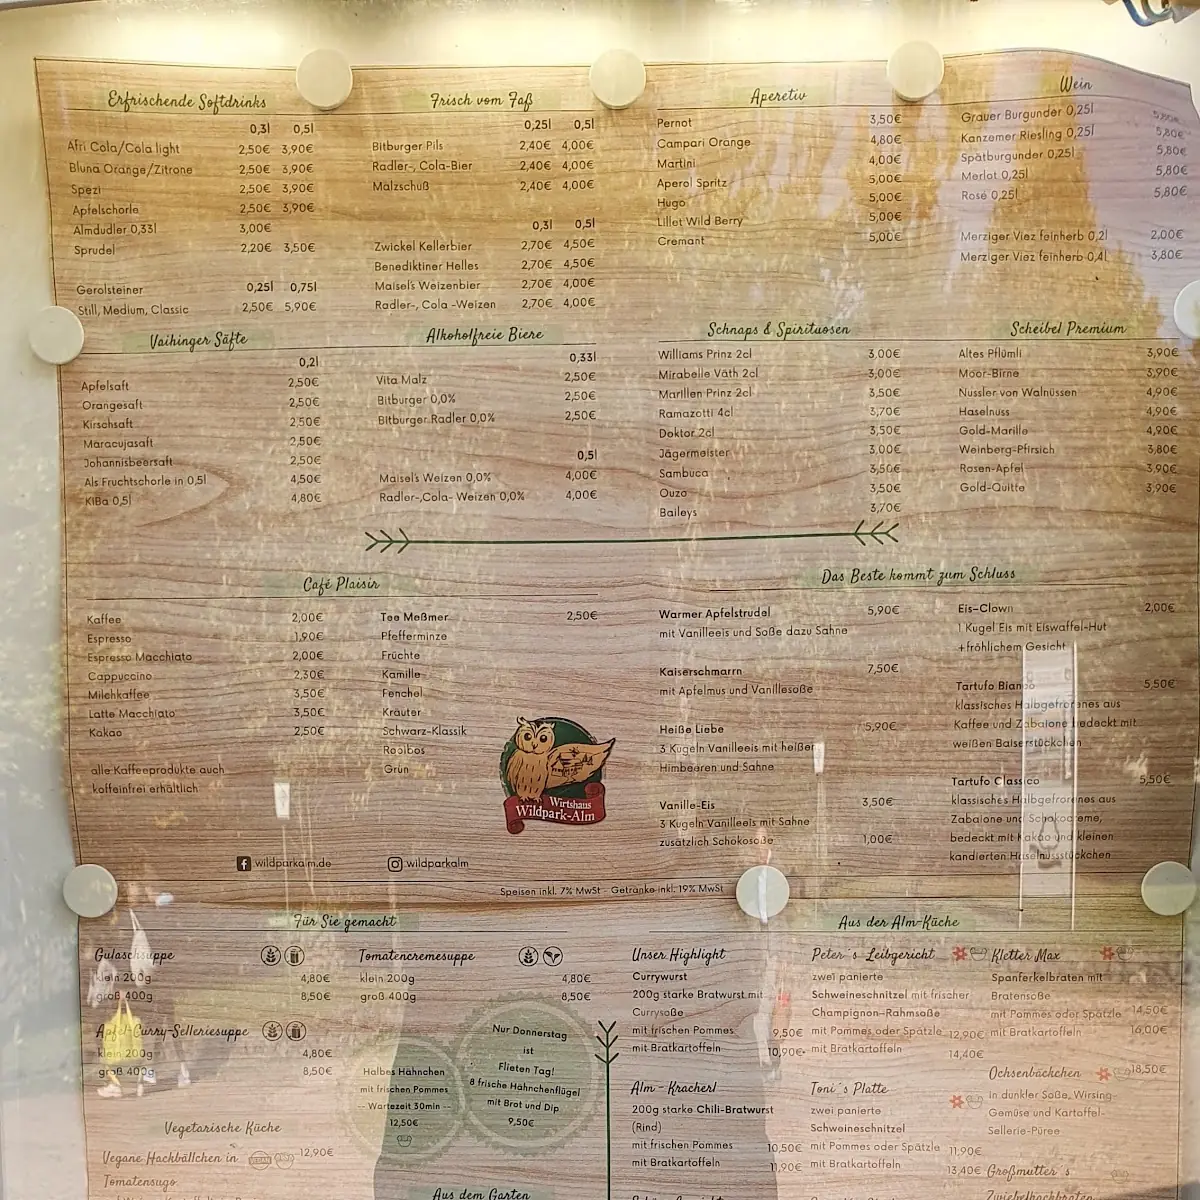 Erfrischende Softdrinks
0,3l 0,5l
Afri Cola/Cola light 2,50€ 3,90€
Bluna Orange/Zitrone 2,50€ 3,90€
Spezi 2,50€ 3,90€
Apfelschorle 2,50€ 3,90€
Almdudler 0,33l 3,00€
Sprudel 2,20€ 3,50€
Gerolsteiner 0,25l 0,75l
Still, Medium, Classic 2,50€ 5,90€
Frisch vom Faß
0,25l 0,5l
Bitburger Pils 2,40€ 4,00€
Radler-, Cola-Bier 2,40€ 4,00€
Malzschuß 2,40€ 4,00€
0,3l 0,5l
Zwickel Kellerbier 2,70€ 4,50€
Benediktiner Helles 2,70€ 4,50€
Maisel's Weizenbier 2,70€ 4,00€
Radler-, Cola -Weizen 2,70€ 4,00€
Aperetiv
Pernot 3,50€
Campari Orange 4,80€
Martini 4,00€
Aperol Spritz 5,00€
Hugo 5,00€
Lillet Wild Berry 5,00€
Cremant 5,00€
Wein
Grauer Burgunder 0,25l 5,80€
Kanzemer Riesling 0,25l 5,80€
Spätburgunder 0,25l 5,80€
Merlot 0,25l 5,80€
Rosé 0,25l 5,80€
Merziger Viez feinherb 0,2l 2,00€
Merziger Viez feinherb 0,4l 3,80€
Vaihinger Säfte
0,2l
Apfelsaft 2,50€
Orangesaft 2,50€
Kirschsaft 2,50€
Maracujasaft 2,50€
Johannisbeersaft 2,50€
Als Fruchtschorle in 0,5l 4,50€
KiBa 0,5l 4,80€
Alkoholfreie Biere
0,33l
Vita Malz 2,50€
Bitburger 0,0% 2,50€
Bitburger Radler 0,0% 2,50€
0,5l
Maisel's Weizen 0,0% 4,00€
Radler-,Cola- Weizen 0,0% 4,00€
Schnaps & Spirituosen
Williams Prinz 2cl 3,00€
Mirabelle Väth 2cl 3,00€
Marillen Prinz 2cl 3,50€
Ramazotti 4cl 3,70€
Doktor 2cl 3,50€
Jägermeister 3,00€
Sambuca 3,50€
Ouzo 3,50€
Baileys 3,70€
Scheibel Premium
Altes Pflümli 3,90€
Moor-Birne 3,90€
Nussler von Walnüssen 4,90€
Haselnuss 4,90€
Gold-Marille 4,90€
Weinberg-Pfirsich 3,80€
Rosen-Apfel 3,90€
Gold-Quitte 3,90€
Café Plaisir
Kaffee 2,00€
Espresso 1,90€
Espresso Macchiato 2,00€
Cappuccino 2,30€
Milchkaffee 3,50€
Latte Macchiato 3,50€
Kakao 2,50€
alle Kaffeeprodukte auch
koffeinfrei erhältlich
Tee Meßmer 2,50€
Pfefferminze
Früchte
Kamille
Fenchel
Kräuter
Schwarz-Klassik
Rooibos
Grün
Wirtshaus
Wildpark-Alm
wildparkalm.de
wildparkalm
Das Beste kommt zum Schluss
Warmer Apfelstrudel 5,90€
mit Vanilleeis und Soße dazu Sahne
Kaiserschmarrn 7,50€
mit Apfelmus und Vanillesoße
Heiße Liebe 5,90€
3 Kugeln Vanilleeis mit heißen
Himbeeren und Sahne
Vanille-Eis 3,50€
3 Kugeln Vanilleeis mit Sahne
zusätzlich Schokosoße 1,00€
Eis-Clown 2,00€
1 Kugel Eis mit Eiswaffel-Hut
+fröhlichem Gesicht
Tartufo Bianco 5,50€
klassisches Halbgefrorenes aus
Kaffee und Zabaione bedeckt mit
weißen Baiserstückchen
Tartufo Classico 5,50€
klassisches Halbgefrorenes aus
Zabaione und Schokocreme,
bedeckt mit Kakao und kleinen
kandierten Haselnussstückchen
Speisen inkl. 7% MwSt - Getränke inkl. 19% MwSt
Für Sie gemacht
Gulaschsuppe
klein 200g 4,80€
groß 400g 8,50€
Apfel-Curry-Selleriesuppe
klein 200g 4,80€
groß 400g 8,50€
Tomatencremesuppe
klein 200g 4,80€
groß 400g 8,50€
Nur Donnerstag
ist
Flieten Tag!
8 frische Hähnchenflügel
mit Brot und Dip
9,50€
Halbes Hähnchen
mit frischen Pommes
-- Wartezeit 30min --
12,50€
Vegetarische Küche
Vegane Hackbällchen in 12,90€
Tomatensugo
Aus dem Garten
Aus der Alm-Küche
Unser Highlight
Currywurst
200g starke Bratwurst mit
Currysoße
mit frischen Pommes 9,50€
mit Bratkartoffeln 10,90€
Alm - Kracherl
200g starke Chili-Bratwurst
(Rind)
mit frischen Pommes 10,50€
mit Bratkartoffeln 11,90€
Peter´s Leibgericht
zwei panierte
Schweineschnitzel mit frischer
Champignon-Rahmsoße
mit Pommes oder Spätzle 12,90€
mit Bratkartoffeln 14,40€
Toni´s Platte
zwei panierte
Schweineschnitzel
mit Pommes oder Spätzle 11,90€
mit Bratkartoffeln 13,40€
Kletter Max
Spanferkelbraten mit
Bratensoße
mit Pommes oder Spätzle 14,50€
mit Bratkartoffeln 16,00€
Ochsenbäckchen 18,50€
in dunkler Soße, Wirsing-
Gemüse und Kartoffel-
Sellerie-Püree
Großmutter´s
Zwiebelhackbraten